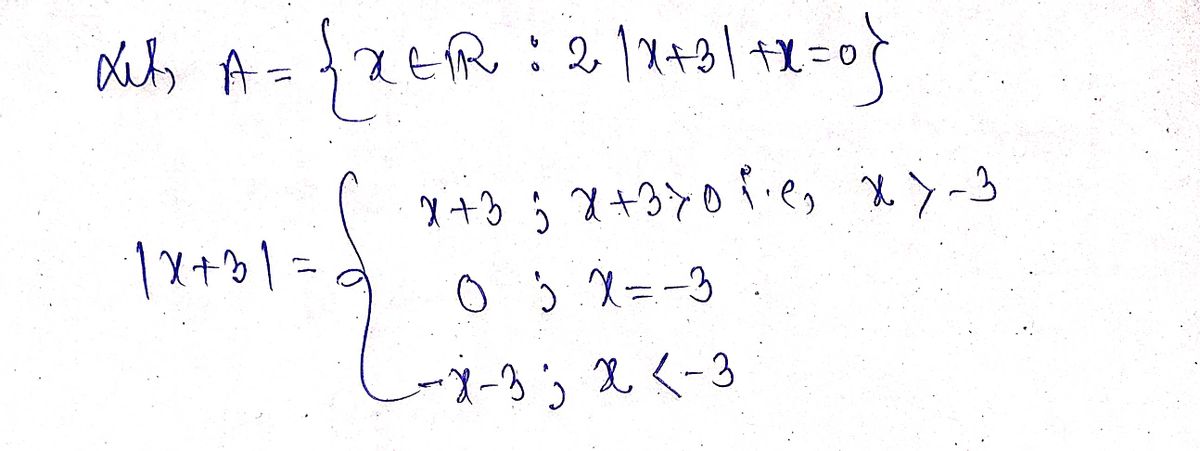 Let, A = { x ∈ ℝ : 2 |x+3| +x=0}
|x+3| = { x+3 ; x+3>0 i.e, x > -3
0 ; x = -3
-x-3 ; x < -3